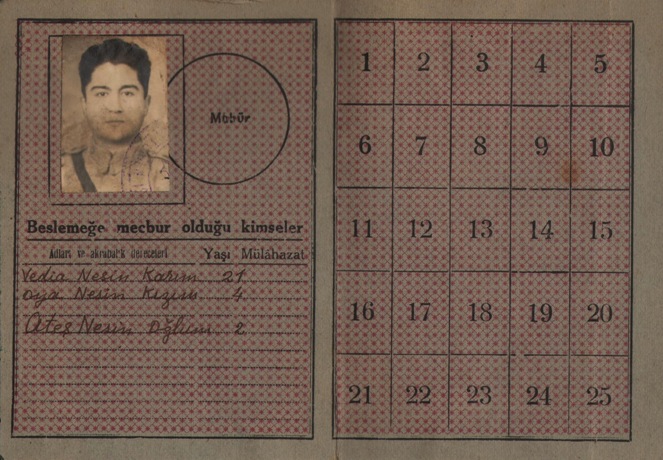 Mühür
Beslemeğe mecbur olduğu kimseler
Adları ve akrabalık dereceleri Yaşı Mülâhazat
Vedia Nesin Karım 21
Oya Nesin Kızım 4
Ateş Nesin Oğlum 2
1 2 3 4 5
6 7 8 9 10
11 12 13 14 15
16 17 18 19 20
21 22 23 24 25